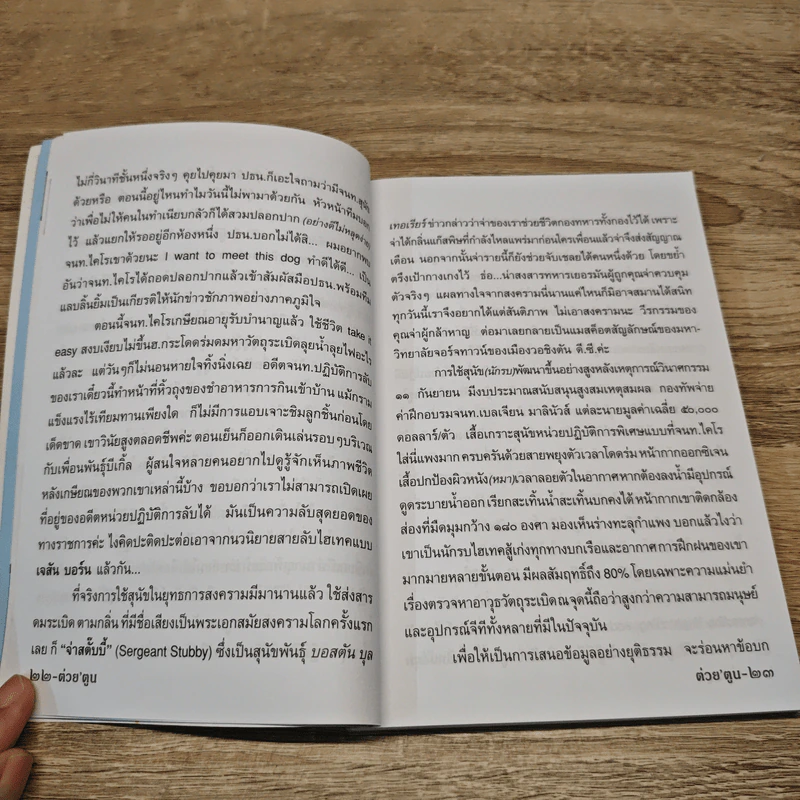 ไม่กี่วินาทีชั้นหนึ่งจริงๆ คุยไปคุยมา ปธน.ก็เอะใจถามว่ามีจนท.สุนัข
ด้วยหรือ ตอนนี้อยู่ไหนทำไมวันนี้ไม่พามาด้วยกัน หัวหน้าทีมบอก
ว่าเพื่อไม่ให้คนในทำเนียบกลัวก็ได้สวมปลอกปาก (อย่างดีไม่หลุดง่าย)
ไว้ แล้วแยกให้รออยู่อีกห้องหนึ่ง ปธน.บอกไม่ได้สิ... ผมอยากพบ
จนท.ไคโรเขาด้วยนะ I want to meet this dog ทำดีได้ดี... เป็น
อันว่าจนท.ไคโรได้ถอดปลอกปากแล้วเข้าสัมผัสมือปธน.พร้อมทีม
แลบลิ้นยิ้มเป็นเกียรติให้นักข่าวชักภาพอย่างภาคภูมิใจ
ตอนนี้จนท.ไคโรเกษียณอายุรับบำนาญแล้ว ใช้ชีวิต take it
easy สงบเงียบไม่ขึ้นฮ.กระโดดร่มดมหาวัตถุระเบิดลุยน้ำลุยไฟอะไร
แล้วละ แต่วันๆก็ไม่นอนหายใจทิ้งนิ่งเฉย อดีตจนท.ปฏิบัติการลับ
ของเราเดี๋ยวนี้ทำหน้าที่หิ้วถุงของชำอาหารการกินเข้าบ้าน แม้กราม
แข็งแรงไร้เทียมทานเพียงใด ก็ไม่มีการแอบเจาะชิมลูกชิ้นก่อนโดย
เด็ดขาด เขาวินัยสูงตลอดชีพค่ะ ตอนเย็นก็ออกเดินเล่นรอบๆบริเวณ
กับเพื่อนพันธุ์บีเกิ้ล ผู้สนใจหลายคนอยากไปดูรู้จักเห็นภาพชีวิต
หลังเกษียณของพวกเขาเหล่านี้บ้าง ขอบอกว่าเราไม่สามารถเปิดเผย
ที่อยู่ของอดีตหน่วยปฏิบัติการลับได้ มันเป็นความลับสุดยอดของ
ทางราชการค่ะ ไงคิดปะติดปะต่อเอาจากนวนิยายสายลับไฮเทคแบบ
เจสัน บอร์น แล้วกัน...
ที่จริงการใช้สุนัขในยุทธการสงครามมีมานานแล้ว ใช้ส่งสาร
ดมระเบิด ตามกลิ่น ที่มีชื่อเสียงเป็นพระเอกสมัยสงครามโลกครั้งแรก
เลย ก็ “จ่าสตั๊บบี้” (Sergeant Stubby) ซึ่งเป็นสุนัขพันธุ์ บอสตัน บุล
๒๒-ต่วย'ตูน
เทอเรียร์ ข่าวกล่าวว่าจ่าของเราช่วยชีวิตกองทหารทั้งกองไว้ได้ เพราะ
จ่าได้กลิ่นแก๊สพิษที่กำลังไหลแพร่มาก่อนใครเพื่อนแล้วจ่าจึงส่งสัญญาณ
เตือน นอกจากนั้นจ่ารายนี้ก็ยังช่วยจับเชลยได้คนหนึ่งด้วย โดยขย้ำ
ตรึงเป้ากางเกงไว้ ฮ่อ...น่าสงสารทหารเยอรมันผู้ถูกคุณจ่าควบคุม
ตัวจริงๆ แผลทางใจจากสงครามนี่นานแค่ไหนก็มิอาจสมานได้สนิท
ทุกวันนี้เราจึงอยากได้แต่สันติภาพ ไม่เอาสงครามนะ วีรกรรมของ
คุณจ่าผู้กล้าหาญ ต่อมาเลยกลายเป็นแมสค็อตสัญลักษณ์ของมหา-
วิทยาลัยจอร์จทาวน์ของเมืองวอชิงตัน ดี.ซี.ค่ะ
การใช้สุนัข(นักรบ)พัฒนาขึ้นอย่างสูงหลังเหตุการณ์วินาศกรรม
๑๑ กันยายน มีงบประมาณสนับสนุนสูงสมเหตุสมผล กองทัพจ่าย
ค่าฝึกอบรมจนท.เบลเจียน มาลินัวส์ แต่ละนายมูลค่าเฉลี่ย ๕๐,๐๐๐
ดอลลาร์/ตัว เสื้อเกราะสุนัขหน่วยปฏิบัติการพิเศษแบบที่จนท.ไคโร
ใส่นี่แพงมาก ครบครันด้วยสายพยุงตัวเวลาโดดร่ม หน้ากากออกซิเจน
เสื้อปกป้องผิวหนัง(หมา)เวลาลอยตัวในอากาศ หากต้องลงน้ำมีอุปกรณ์
ดูดระบายน้ำออก เรียกสะเทิ้นน้ำสะเทิ้นบกคงได้ หน้ากากเขาติดกล้อง
ส่องที่มืดมุมกว้าง ๑๘๐ องศา มองเห็นร่างทะลุกำแพง บอกแล้วไงว่า
เขาเป็นนักรบไฮเทคสู้เก่งทุกทางบกเรือและอากาศ การฝึกฝนของเขา
มากมายหลายขั้นตอน มีผลสัมฤทธิ์ถึง 80% โดยเฉพาะความแม่นยำ
เรื่องตรวจหาอาวุธวัตถุระเบิด ณ จุดนี้ถือว่าสูงกว่าความสามารถมนุษย์
และอุปกรณ์จีทีทั้งหลายที่มีในปัจจุบัน
เพื่อให้เป็นการเสนอข้อมูลอย่างยุติธรรม จะร่อนหาข้อบก
ต่วย'ตูน-๒๓